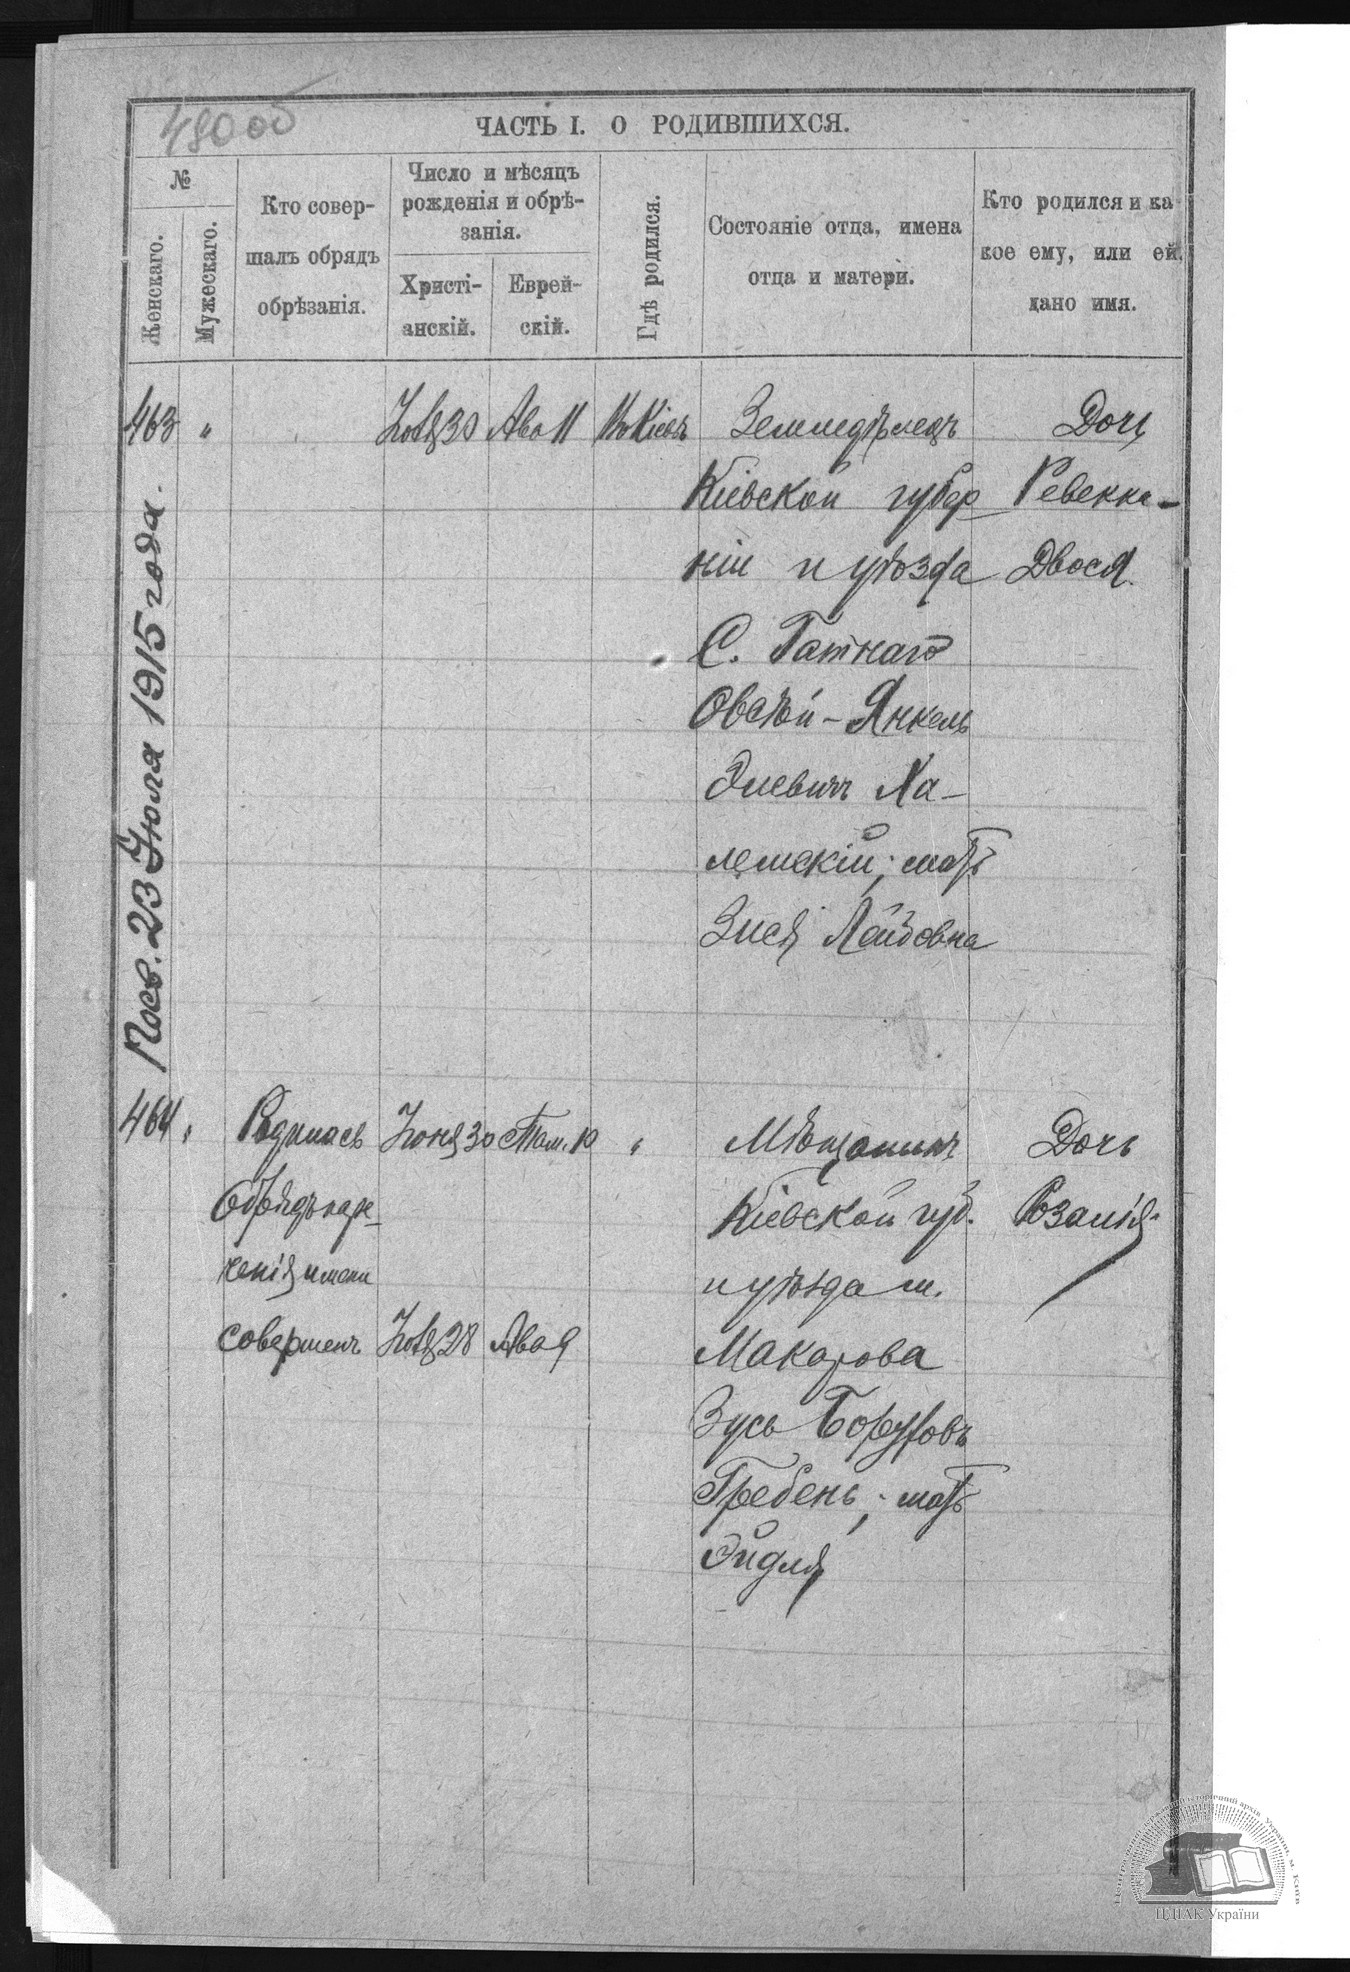 490об
ЧАСТЬ I. О РОДИВШИХСЯ.
№
Женскаго.
Мужескаго.
Кто совер-
шалъ обрядъ
обрѣзанія.
Число и мѣсяцъ
рожденія и обрѣ-
занія.
Христі-
анскій.
Еврей-
скій.
Гдѣ родился.
Состояніе отца, имена
отца и матери.
Кто родился и ка
кое ему, или ей,
дано имя.
463 " Іюля 30 Ава 11 Въ Кіевѣ Земледѣлецъ Дочь
Кіевской губер Ревекка-
ніи и уѣзда Двося.
С. Гатнаго
Овсѣй-Янкель
Элевичъ Ха-
лемскій; мать
Зися Лейбовна
Посв. 23 Іюля 1915 года.
464 " Родилась Іюня 30 Там. 10 " Мѣщанинъ Дочь
Обрядъ наре- Кіевской губ. Розалія.
ченія имени и уѣзда м.
совершенъ Іюля 28 Ава 9 Макарова
Зусь Боруховъ
Гребень; мать
Эйдля
Центральний державний історичний архів України, м. Київ
ЦДІАК України